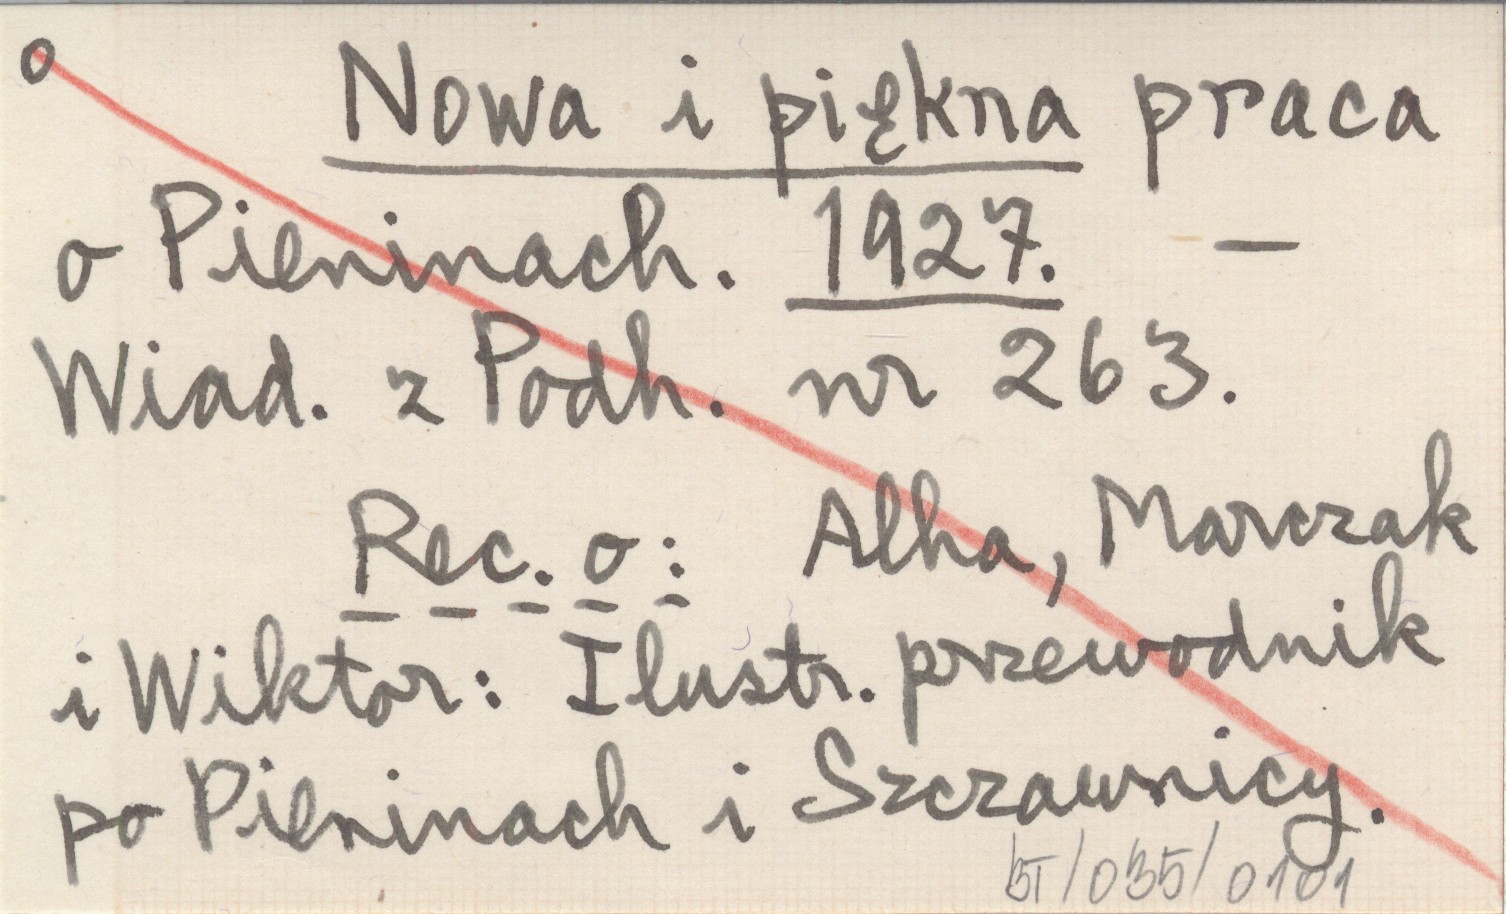 o Nowa i piękna praca
o Pieninach. 1927. —
Wiad. z Podh. nr 263.
Rec. o: Alha, Marczak
i Wiktor: Ilustr. przewodnik
po Pieninach i Szczawnicy.
BT/035/0101